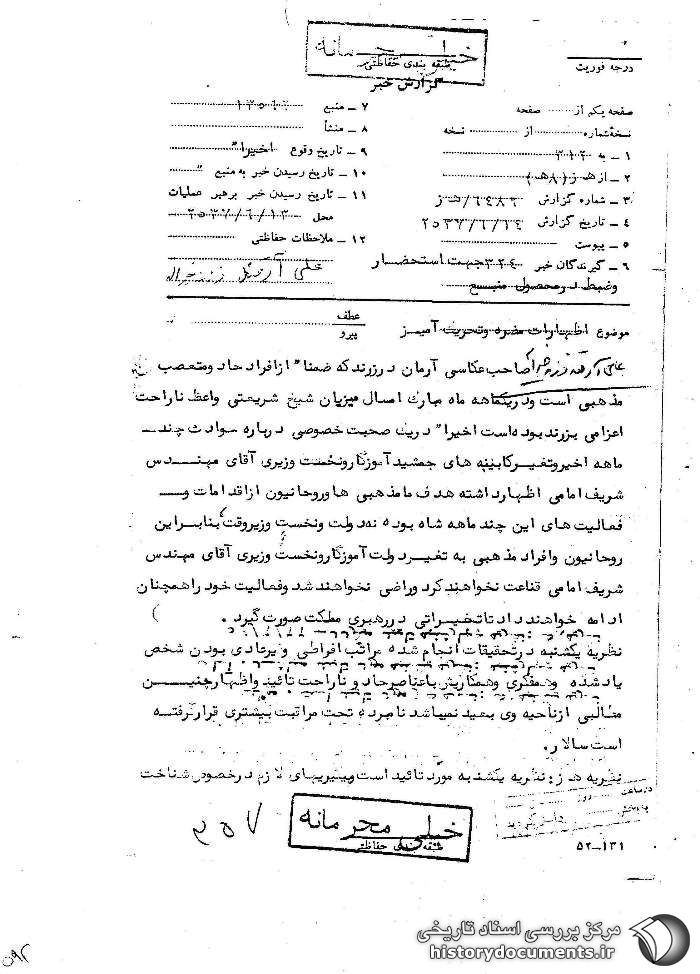 خیلی محرمانه
طبقه بندی حفاظتی
گزارش خبر
درجه فوریت
صفحه یکم از صفحه
نسخه شماره از نسخه
۱ ـ به ۳۱۲
۲ ـ از ه‍ ز (۸ ه‍)
۳ ـ شماره گزارش ۶۴۸۲/ه‍ ز
۴ ـ تاریخ گزارش ۲۵۳۷/۶/۱۴
۵ ـ پیوست
۶ ـ گیرندگان خبر ۳۲۴ جهت استحضار
وضبط در محصول منبع
۷ ـ منبع
۸ ـ منشأ
۹ ـ تاریخ وقوع اخیرا"
۱۰ ـ تاریخ رسیدن خبر به منبع "
۱۱ ـ تاریخ رسیدن خبر برهبر عملیات
محل ۲۵۳۷/۶/۱۳
۱۲ ـ ملاحظات حفاظتی
علی
موضوع اظهارات مضره وتحریک آمیز
عطف
پیرو
علی صاحب عکاسی آرمان در زرند که ضمنا" از افراد حاد ومتعصب
مذهبی است ودرینماهه ماه مبارک امسال میزبان شیخ شریعتی واعظ ناراحت
اعزامی بزرند بوده است اخیرا" دریک صحبت خصوصی درباره حوادث چند
ماهه اخیر وتغییر کابینه های جمشید آموزگار ونخست وزیری آقای مهندس
شریف امامی اظهار داشته هدف ما مذهبی ها وروحانیون از اقدامات و
فعالیت های این چند ماهه شاه بوده نه دولت ونخست وزیر وقت بنابراین
روحانیون وافراد مذهبی به تغییر دولت آموزگار ونخست وزیری آقای مهندس
شریف امامی قناعت نخواهند کرد وراضی نخواهند شد وفعالیت خود را همچنان
ادامه خواهند داد تا تغییراتی در رهبری مملکت صورت گیرد .
نظریه یکشنبه در تحقیقات انجام شده مراتب افراطی و غیرعادی بودن شخص
یاد شده وهمفکری وهمکاریش با عناصر حاد و ناراحت تائید واظهار چنین
مطالبی از ناحیه وی بعید نمیباشد نامبرده تحت مراقبت بیشتری قرار گرفته
است سالار.
نظریه ه‍ ز : نظریه یکشنبه مورد تائید است وپیگیریهای لازم در خصوص شناخت
خیلی محرمانه
طبقه بندی حفاظتی
در ساعت روز
۵۲-۱۳۱
۵۹۲
مرکز بررسی اسناد تاریخی
historydocuments.ir